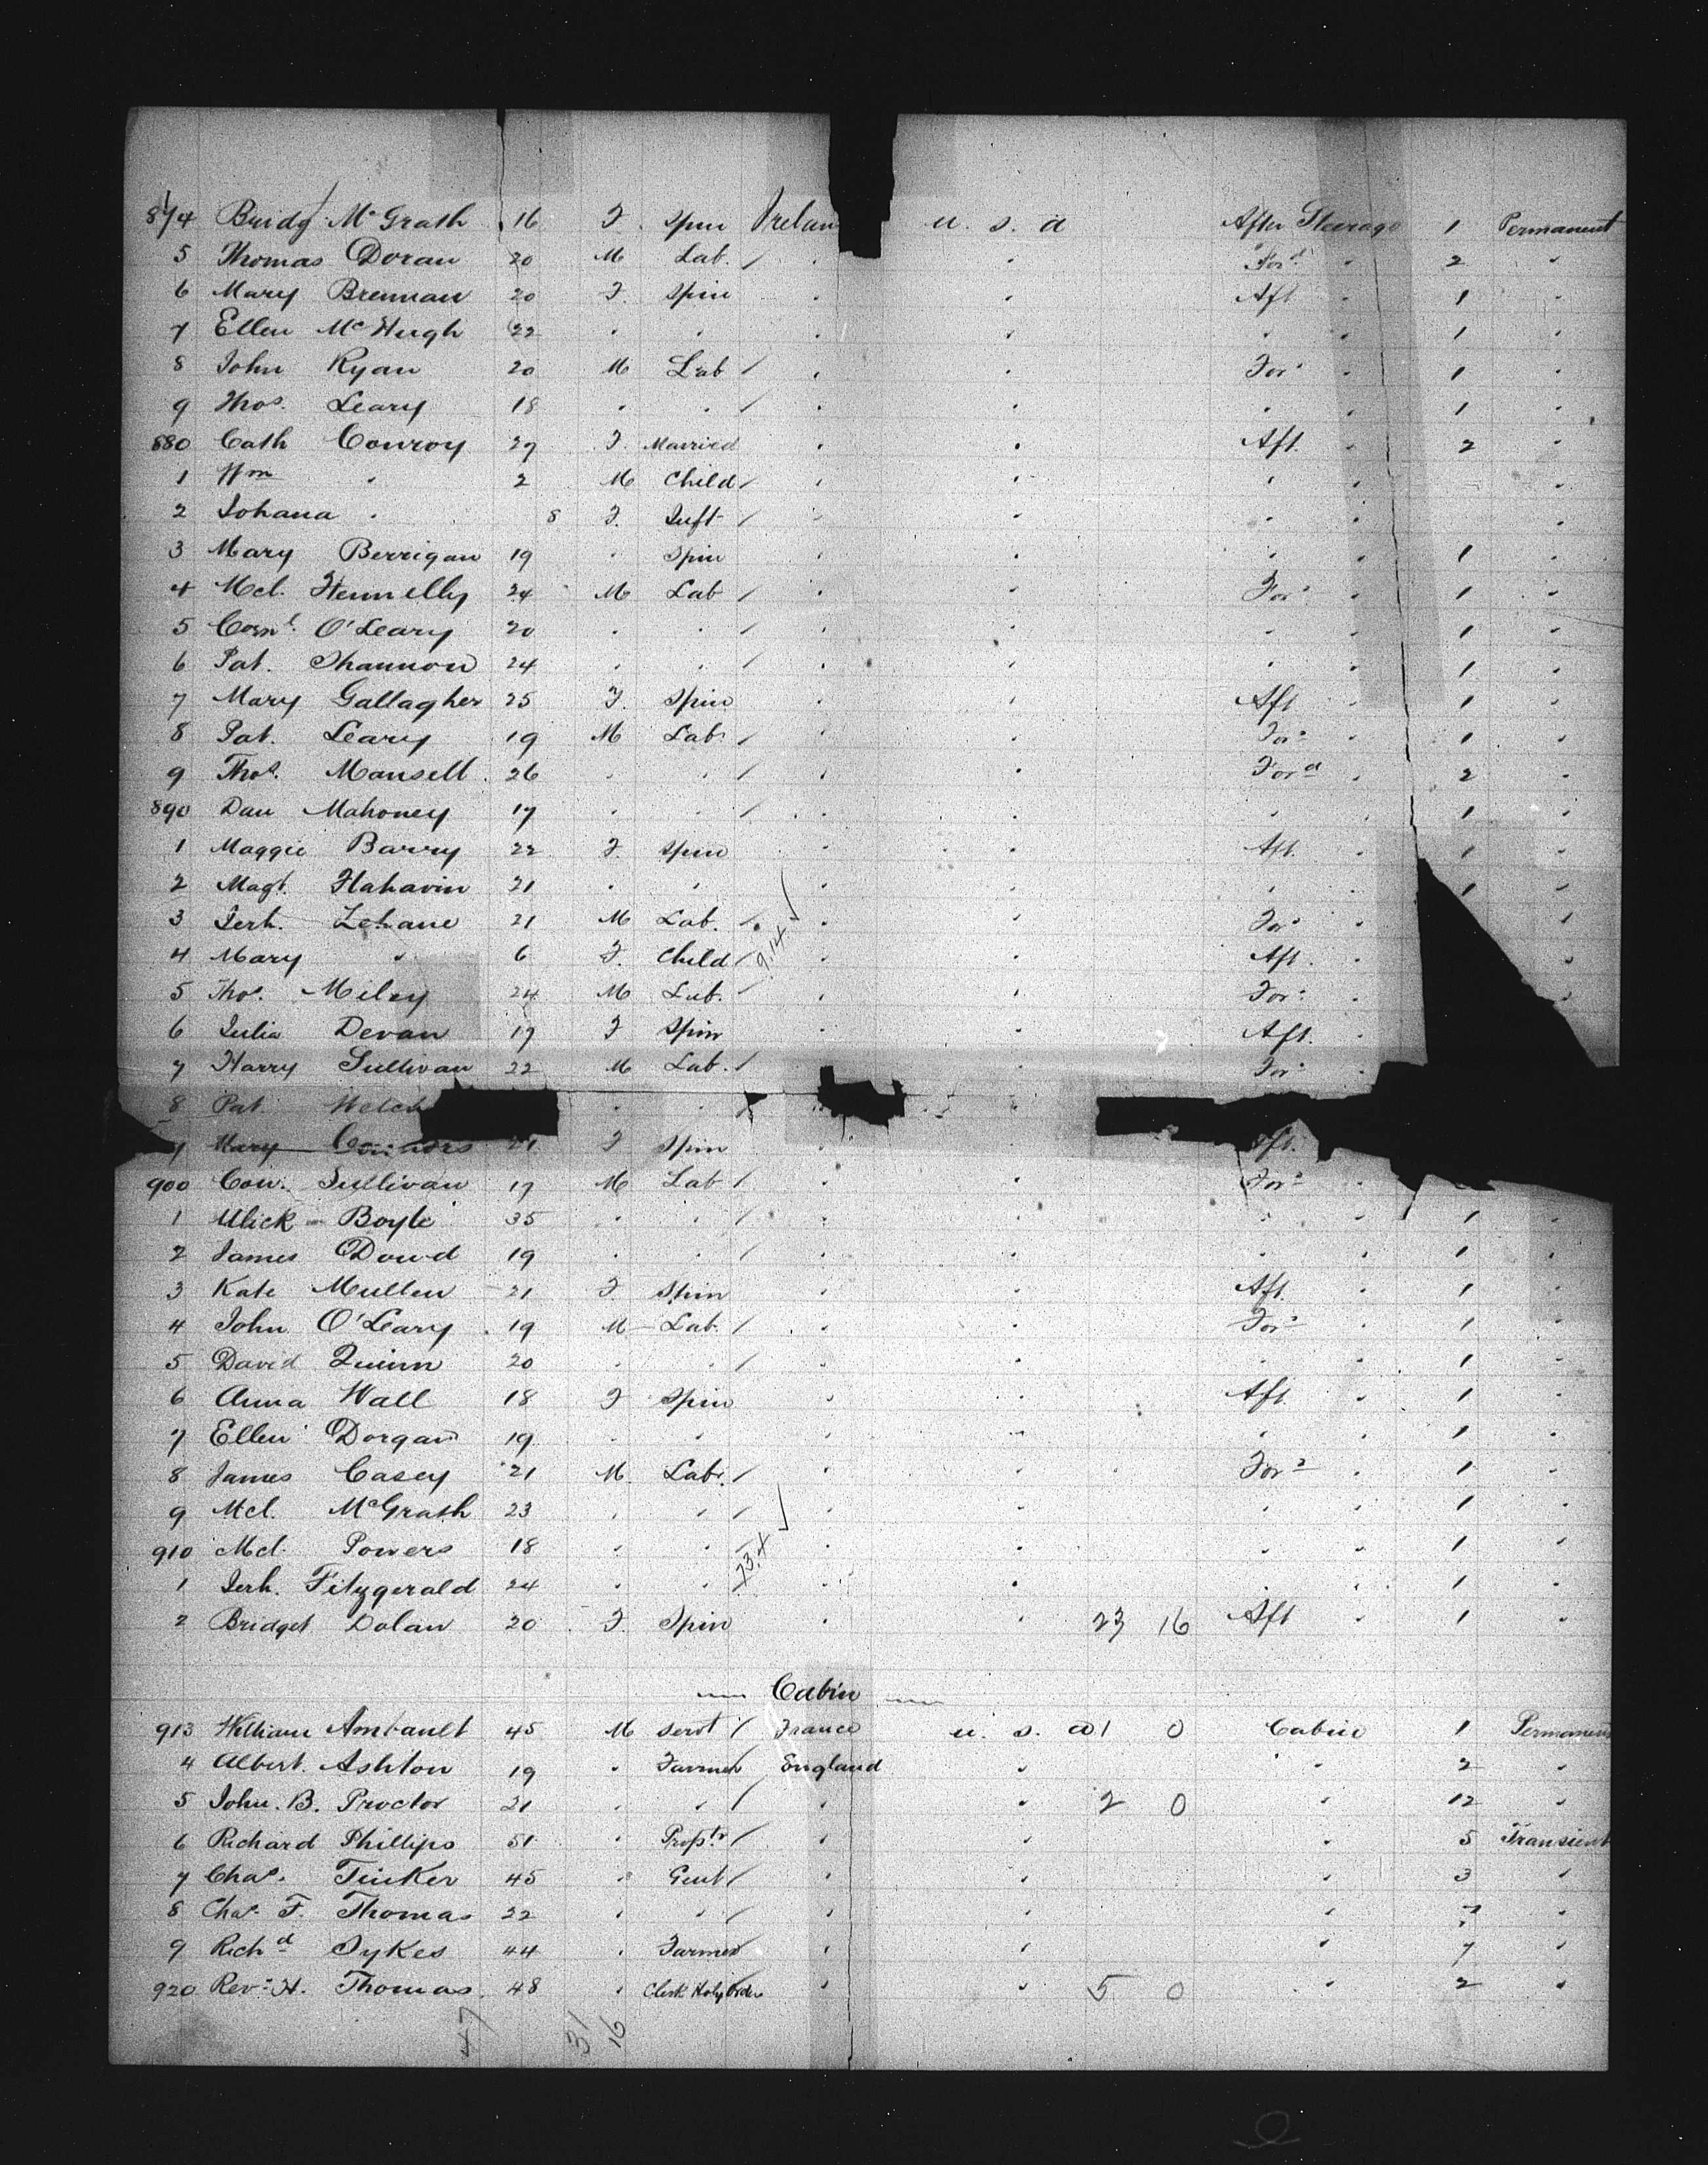 874 Bridg McGrath 16 F Spin Irelan u. s. a After Steerage 1 Permanent
5 Thomas Doran 20 M Lab. / " " For^d " 2 "
6 Mary Brennan 20 F. Spin " " Aft " 1 "
7 Ellen McHugh 22 " " " " " " 1 "
8 John Ryan 20 M Lab / " " For^d " 1 "
9 Thos. Leary 18 " " / " " " " 1 "
880 Cath Conroy 27 F. Married " " Aft. " 2 "
1 Wm " 2 M Child / " " " " "
2 Johana " 8 F. Inft / " " " " "
3 Mary Berrigan 19 " Spin " " " " 1 "
4 Mcl. Fennelly 24 M Lab / " " For^d " 1 "
5 Corn^l. O'Leary 20 " " / " " " " 1 "
6 Pat. Shannon 24 " " / " " " " 1 "
7 Mary Gallagher 25 F. Spin " " Aft " 1 "
8 Pat. Leary 19 M Lab. / " " For^d " 1 "
9 Thos. Mansell 26 " " / " " For^d " 2 "
890 Dan Mahoney 17 " " / " " " " 1 "
1 Maggie Barry 22 F. Spin " " Aft. " 1 "
2 Magt. Flahavin 21 " " " " " " 1 "
3 Jerh. Lehane 21 M Lab. / " " For^d " "
4 Mary " 6 F. Child / 9.14 " " Aft. " "
5 Thos. Miley 24 M Lab. / " " For^d "
6 Julia Devan 17 F Spin " " Aft.
7 Harry Sullivan 22 M Lab. / " " For^d "
8 Pat Welch " " / " "
9 Mary Connors 21 F Spin " Aft.
900 Con. Sullivan 17 M Lab / " " For^d "
1 Mick Boyle 35 " " / " " " " 1 "
2 James Dowd 19 " " / " " " " 1 "
3 Kate Mullen 21 F Spin " " Aft " 1 "
4 John O'Leary 19 M Lab. / " " For^d " 1 "
5 David Quinn 20 " " / " " " " 1 "
6 Anna Wall 18 F Spin " " Aft " 1 "
7 Ellen Dorgan 19 " " " " " " 1 "
8 James Casey 21 M. Lab. / " " For^d " 1 "
9 Mcl. McGrath 23 " " / " " " " 1 "
910 Mcl. Powers 18 " " / 23.4 " " " " 1 "
1 Jerh. Fitzgerald 24 " " / " " " " 1 "
2 Bridget Dolan 20 F. Spin " " 23 16 Aft " 1 "
Cabin
913 William Ambault 45 M Servt / France u. s. a 1 0 Cabin 1 Permanen
4 Albert. Ashton 19 " Farmer England " " 2 "
5 John. B. Proctor 21 " " / " " 2 0 " 12 "
6 Richard Phillips 51 " Prop^tr / " " " 5 Transient
7 Chas. Tinker 45 " Gent / " " " 3 "
8 Chas. F. Thomas 22 " " / " " " "
9 Rich^d Sykes 44 " Farmer " " " 7 "
920 Rev^d H. Thomas. 48 " Clerk Holy Order " " 5 0 " 2 "
47 31 16